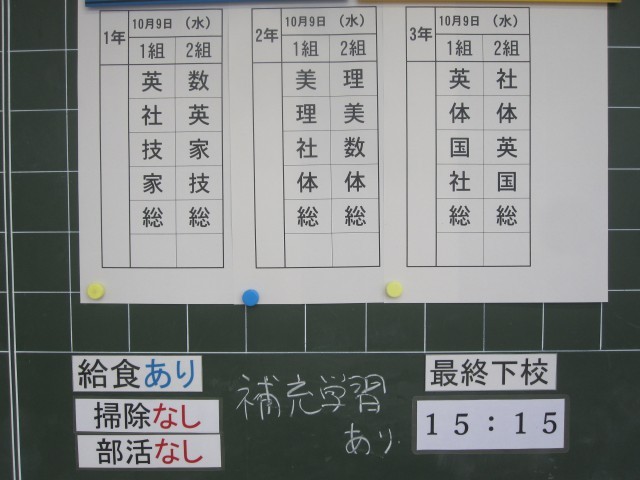 1年 10月9日 (水)
1組 2組
英 数
社 英
技 家
家 技
総 総
2年 10月9日 (水)
1組 2組
美 理
理 美
社 数
体 体
総 総
3年 10月9日 (水)
1組 2組
英 社
体 体
国 英
社 国
総 総
給食あり
掃除なし
部活なし
補充学習
あり
最終下校
15:15